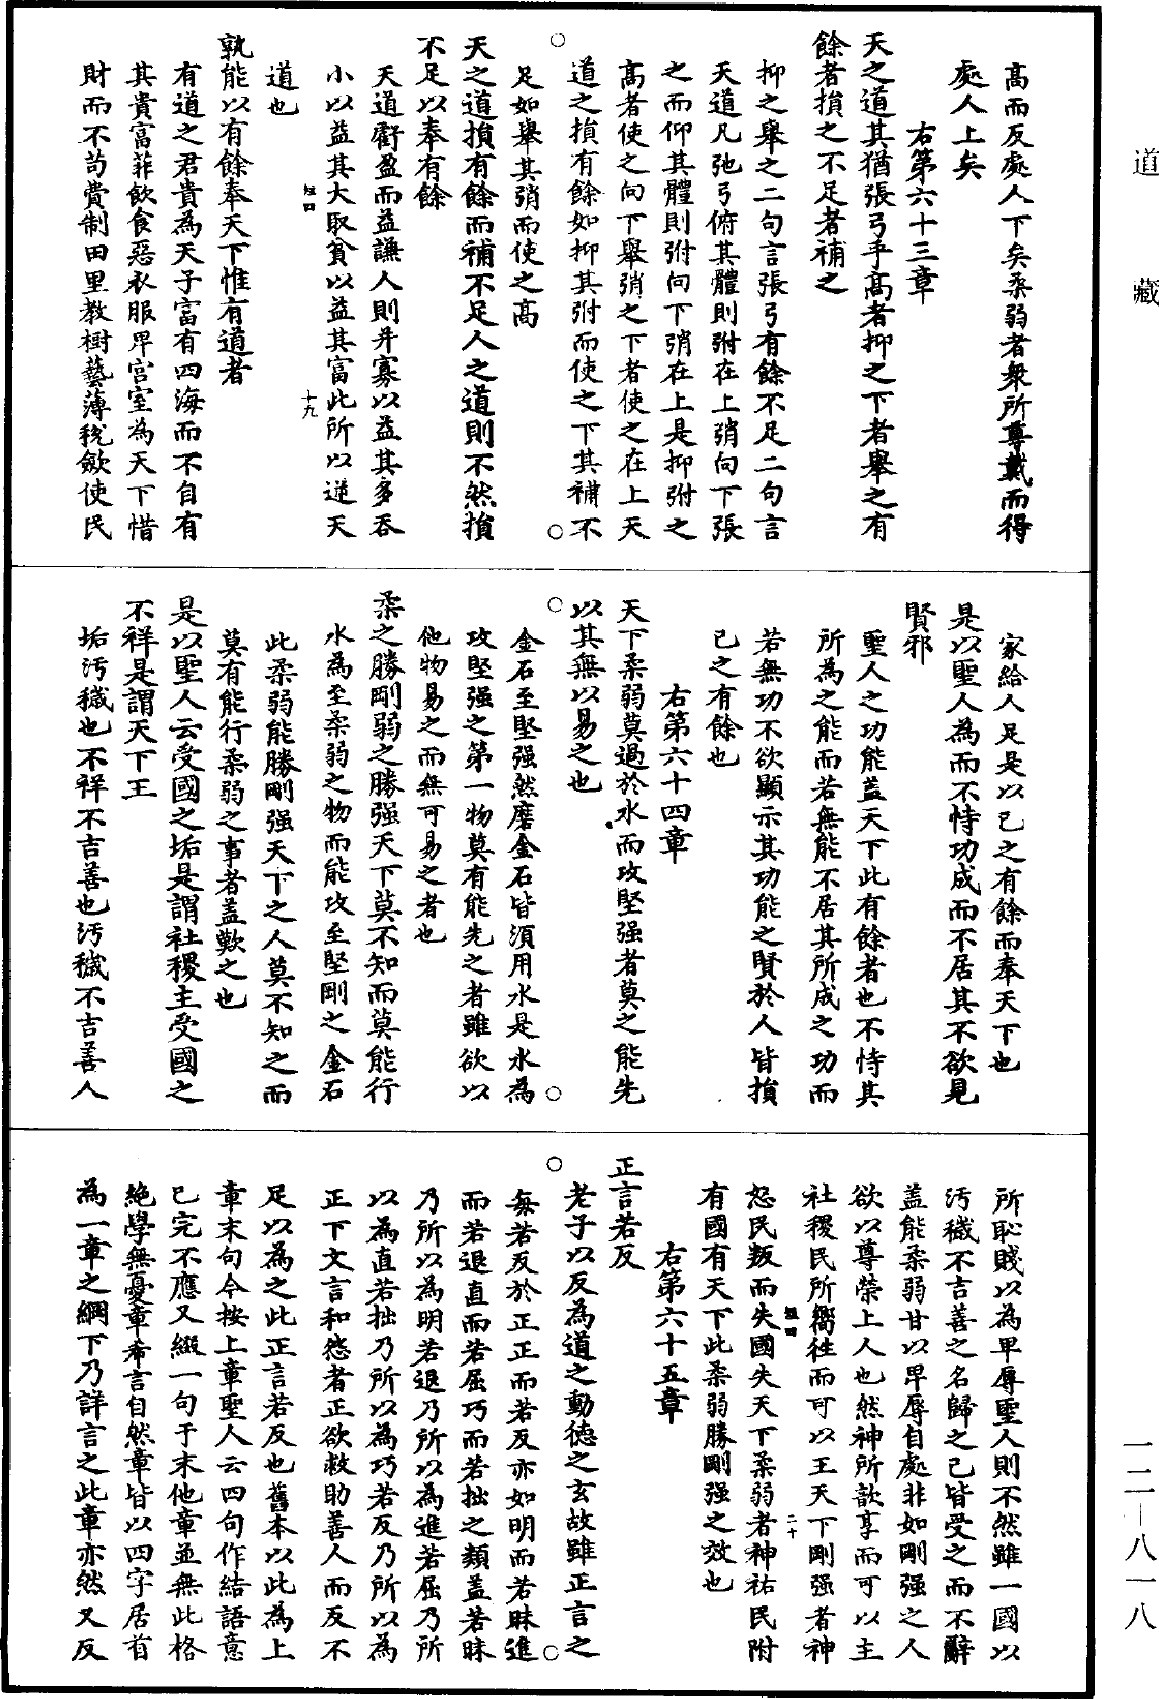 道藏
高而反處人下矣柔弱者衆所尊戴而得
處人上矣
右第六十三章
天之道其猶張弓乎高者抑之下者舉之有
餘者損之不足者補之
抑之舉之二句言張弓有餘不足二句言
天道凡弛弓俯其體則弣在上弰向下張
之而仰其體則弣向下弰在上是抑弣之
高者使之向下舉弰之下者使之在上天
道之損有餘如抑其弣而使之下其補不
足如舉其弰而使之高
天之道損有餘而補不足人之道則不然損
不足以奉有餘
天道虧盈而益謙人則并寡以益其多吞
小以益其大取貧以益其富此所以逆天
十九
道也
孰能以有餘奉天下惟有道者
有道之君貴為天子富有四海而不自有
其貴富菲飲食惡衣服卑宮室為天下惜
財而不苟費制田里教樹藝薄稅歛使民
家給人足是以己之有餘而奉天下也
是以聖人為而不恃功成而不居其不欲見
賢邪
聖人之功能蓋天下此有餘者也不恃其
所為之能而若無能不居其所成之功而
若無功不欲顯示其功能之賢於人皆損
己之有餘也
右第六十四章
天下柔弱莫過於水而攻堅强者莫之能先
以其無以易之也
金石至堅强然磨金石皆須用水是水為
攻堅强之第一物莫有能先之者雖欲以
他物易之而無可易之者也
柔之勝剛弱之勝强天下莫不知而莫能行
水為至柔弱之物而能攻至堅剛之金石
此柔弱能勝剛强天下之人莫不知之而
莫有能行柔弱之事者蓋歎之也
是以聖人云受國之垢是謂社稷主受國之
不祥是謂天下王
垢汚穢也不祥不吉善也汚穢不吉善人
所恥賤以為卑辱聖人則不然雖一國以
汚穢不吉善之名歸之己皆受之而不辭
蓋能柔弱甘以卑辱自處非如剛强之人
欲以尊榮上人也然神所歆享而可以主
社稷民所嚮往而可以王天下剛强者神
二十
怒民叛而失國失天下柔弱者神祐民附
有國有天下此柔弱勝剛强之效也
右第六十五章
正言若反
老子以反為道之動德之玄故雖正言之
每若反於正正而若反亦如明而若昧進
而若退直而若屈巧而若拙之類蓋若昧
乃所以為明若退乃所以為進若屈乃所
以為直若拙乃所以為巧若反乃所以為
正下文言和怨者正欲救助善人而反不
足以為之此正言若反也舊本以此為上
章末句今按上章聖人云四句作結語意
已完不應又綴一句于末他章並無此格
絕學無憂章希言自然章皆以四字居首
為一章之綱下乃詳言之此章亦然又反
一二—八一八